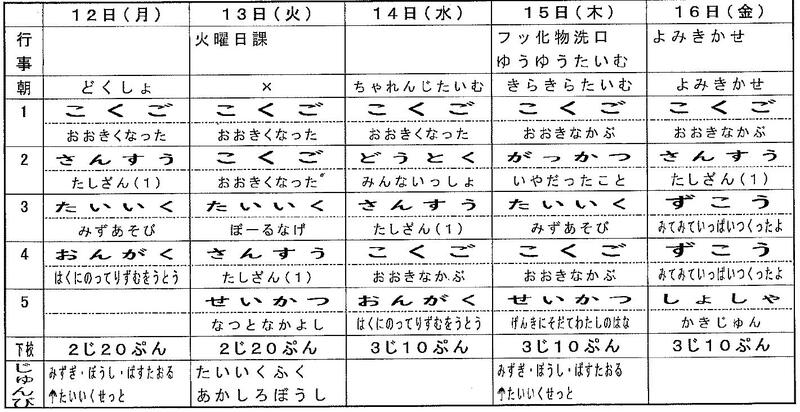 12日(月) 13日(火) 14日(水) 15日(木) 16日(金)
行事 火曜日課 フッ化物洗口 よみきかせ
ゆうゆうたいむ
朝 どくしょ × ちゃれんじたいむ きらきらたいむ よみきかせ
1 こくご こくご こくご こくご こくご
おおきくなった おおきくなった おおきくなった おおきなかぶ おおきなかぶ
2 さんすう こくご どうとく がっかつ さんすう
たしざん(1) おおきくなった みんないっしょ いやだったこと たしざん(1)
3 たいいく たいいく さんすう たいいく ずこう
みずあそび ぼーるなげ たしざん(1) みずあそび みてみていっぱいつくったよ
4 おんがく さんすう こくご こくご ずこう
はくにのってりずむをうとう たしざん(1) おおきなかぶ おおきなかぶ みてみていっぱいつくったよ
5 せいかつ おんがく せいかつ しょしゃ
なつとなかよし はくにのってりずむをうとう げんきにそだてわたしのはな かきじゅん
下校 2じ20ぷん 2じ20ぷん 3じ10ぷん 3じ10ぷん 3じ10ぷん
じゅんび みずぎ・ぼうし・ばすたおる たいいくふく みずぎ・ぼうし・ばすたおる
↑たいいくせっと あかしろぼうし ↑たいいくせっと